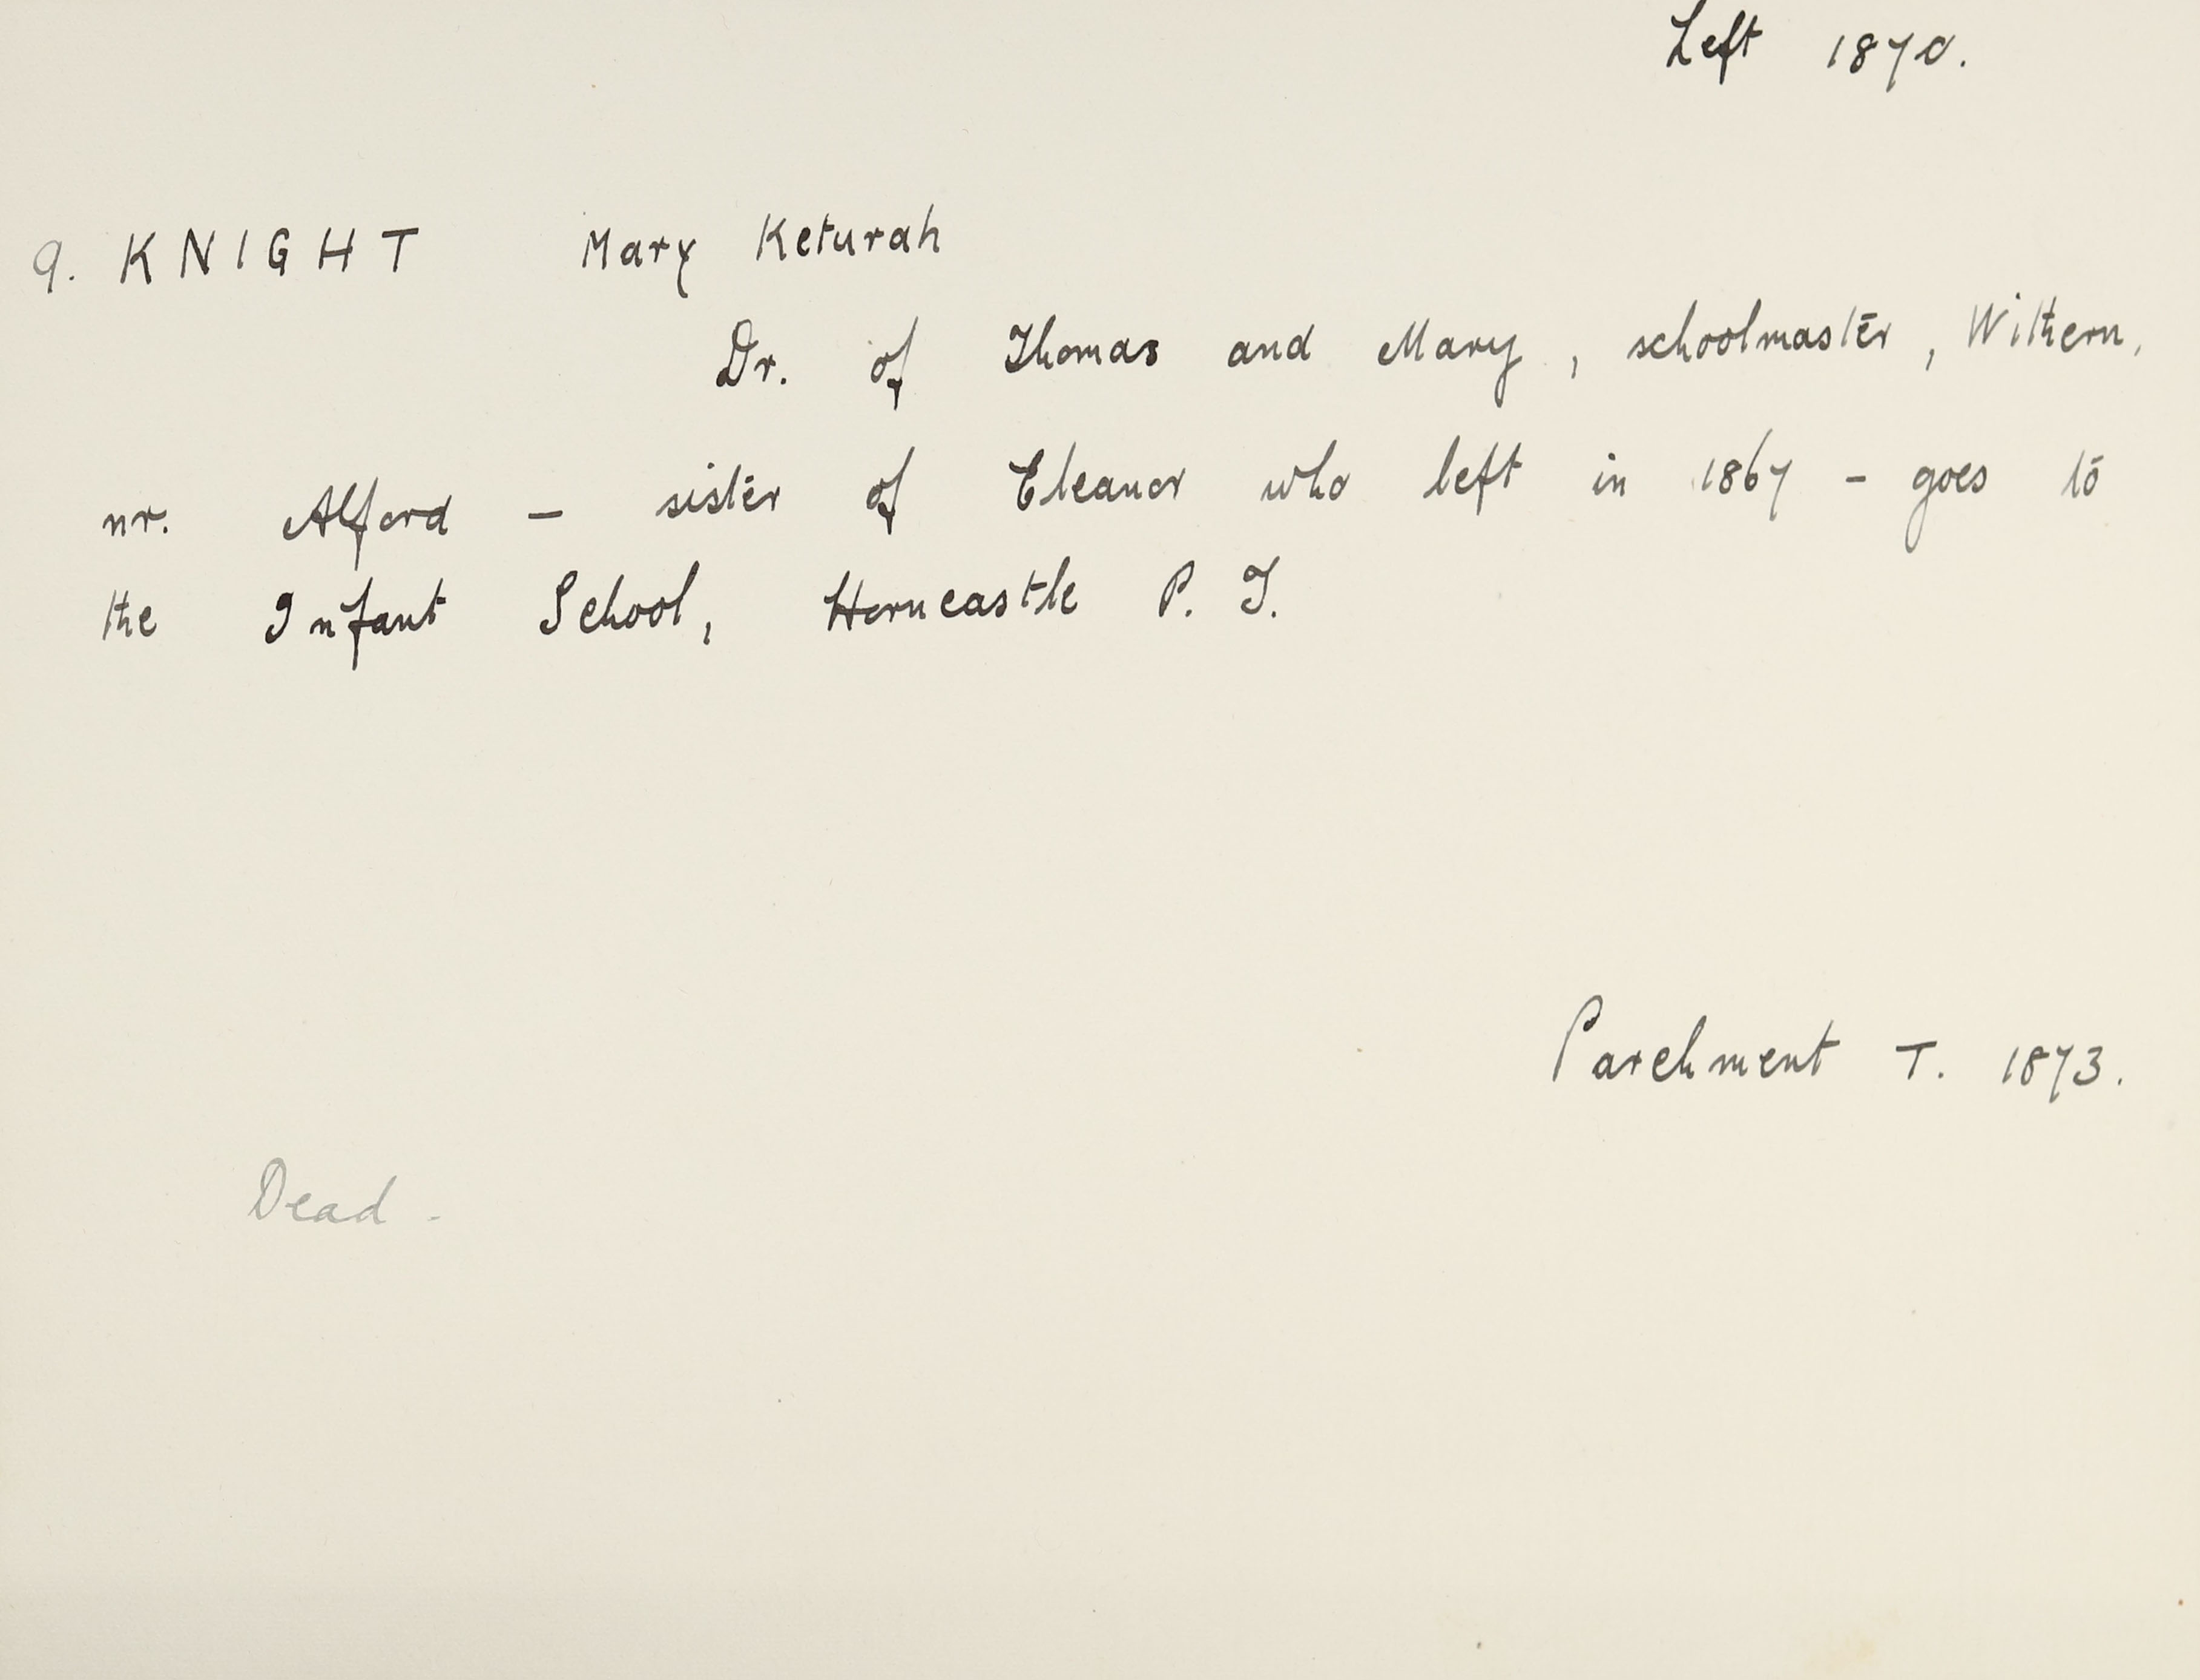 Left 1870.
9. KNIGHT Mary Keturah
Dr. of Thomas and Mary, schoolmaster, Withern,
nr. Alford – sister of Eleanor who left in 1867 – goes to
the Infant School, Horncastle P. T.
Parchment T. 1873.
Dead -